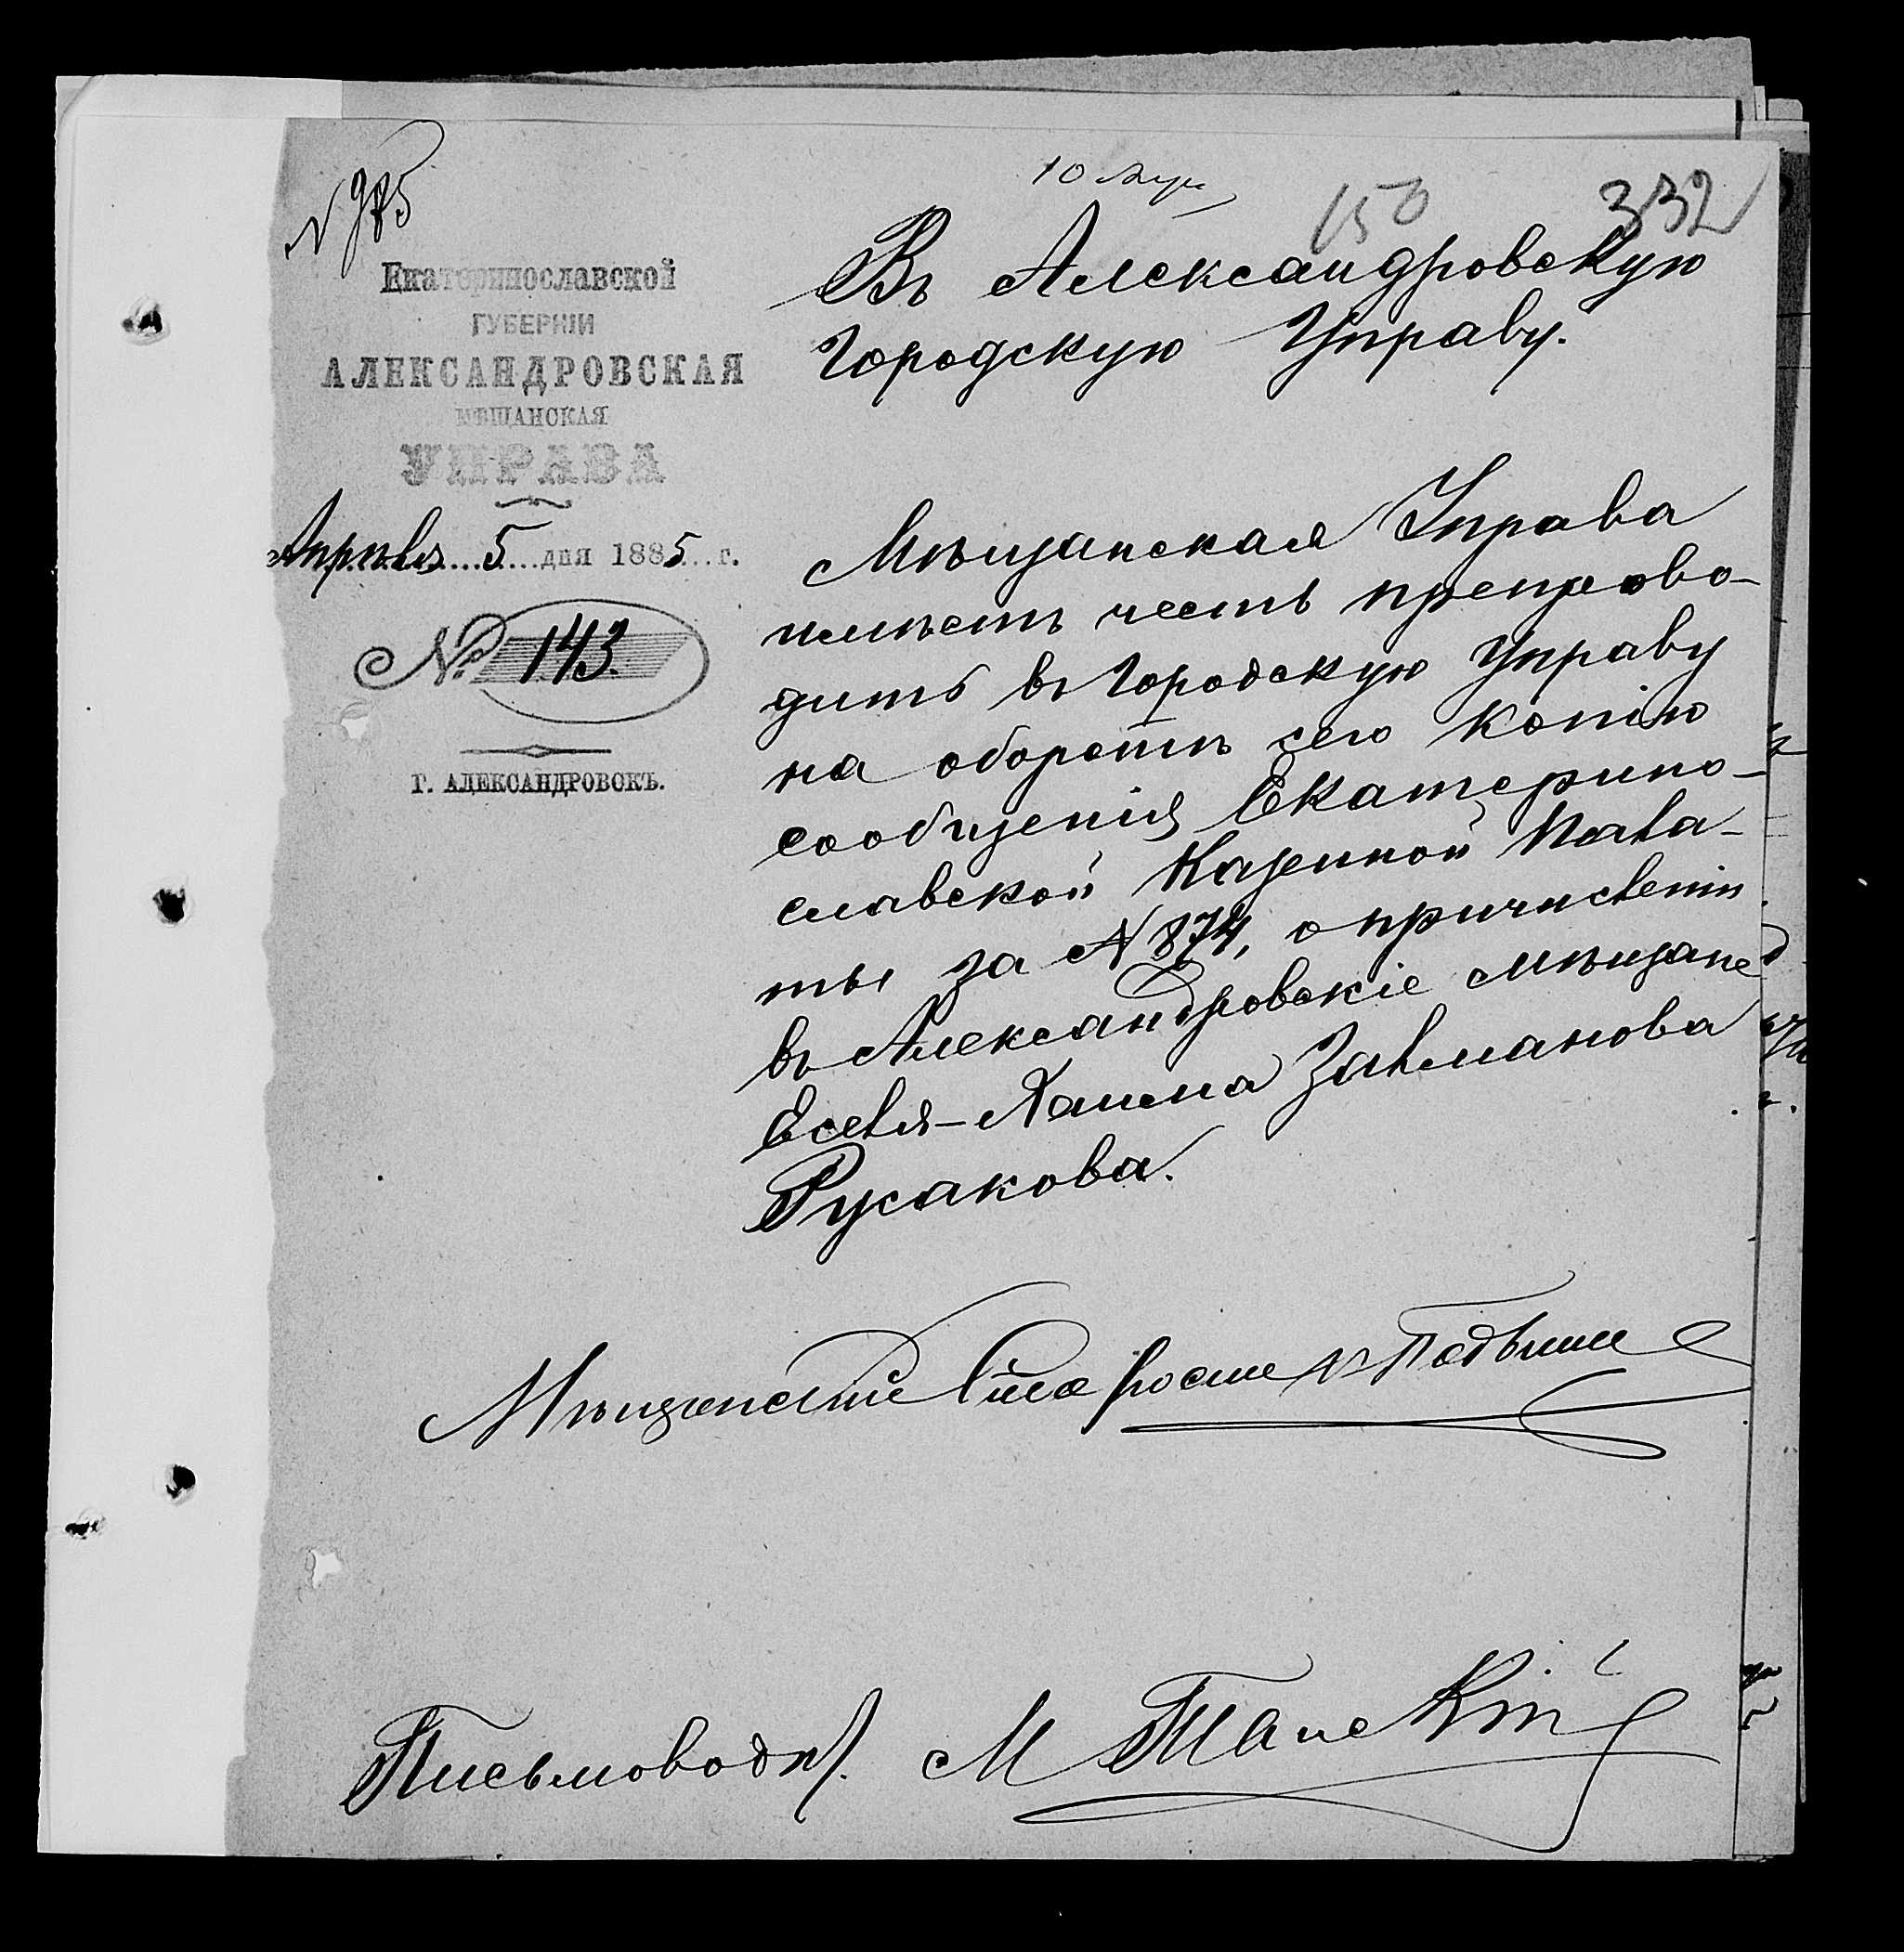 N 985
10 Апр
150
332
Екатеринославской
ГУБЕРНІИ
АЛЕКСАНДРОВСКАЯ
МѢЩАНСКАЯ
УПРАВА
Апрѣля 5 дня 1885 г.
№ 143.
Г. АЛЕКСАНДРОВСКЪ.
Въ Александровскую
Городскую Управу.
Мѣщанская Управа
имѣетъ честь препрово-
дить въ Городскую Управу
на оборотѣ сего копію
сообщенія Екатерино-
славской Казенной Пала-
ты за N 874, о причисленіи
въ Александровскіе мѣщане
Еселя-Хаима Залманова
Русакова.
Мѣщанскій Староста
Письмовод. М